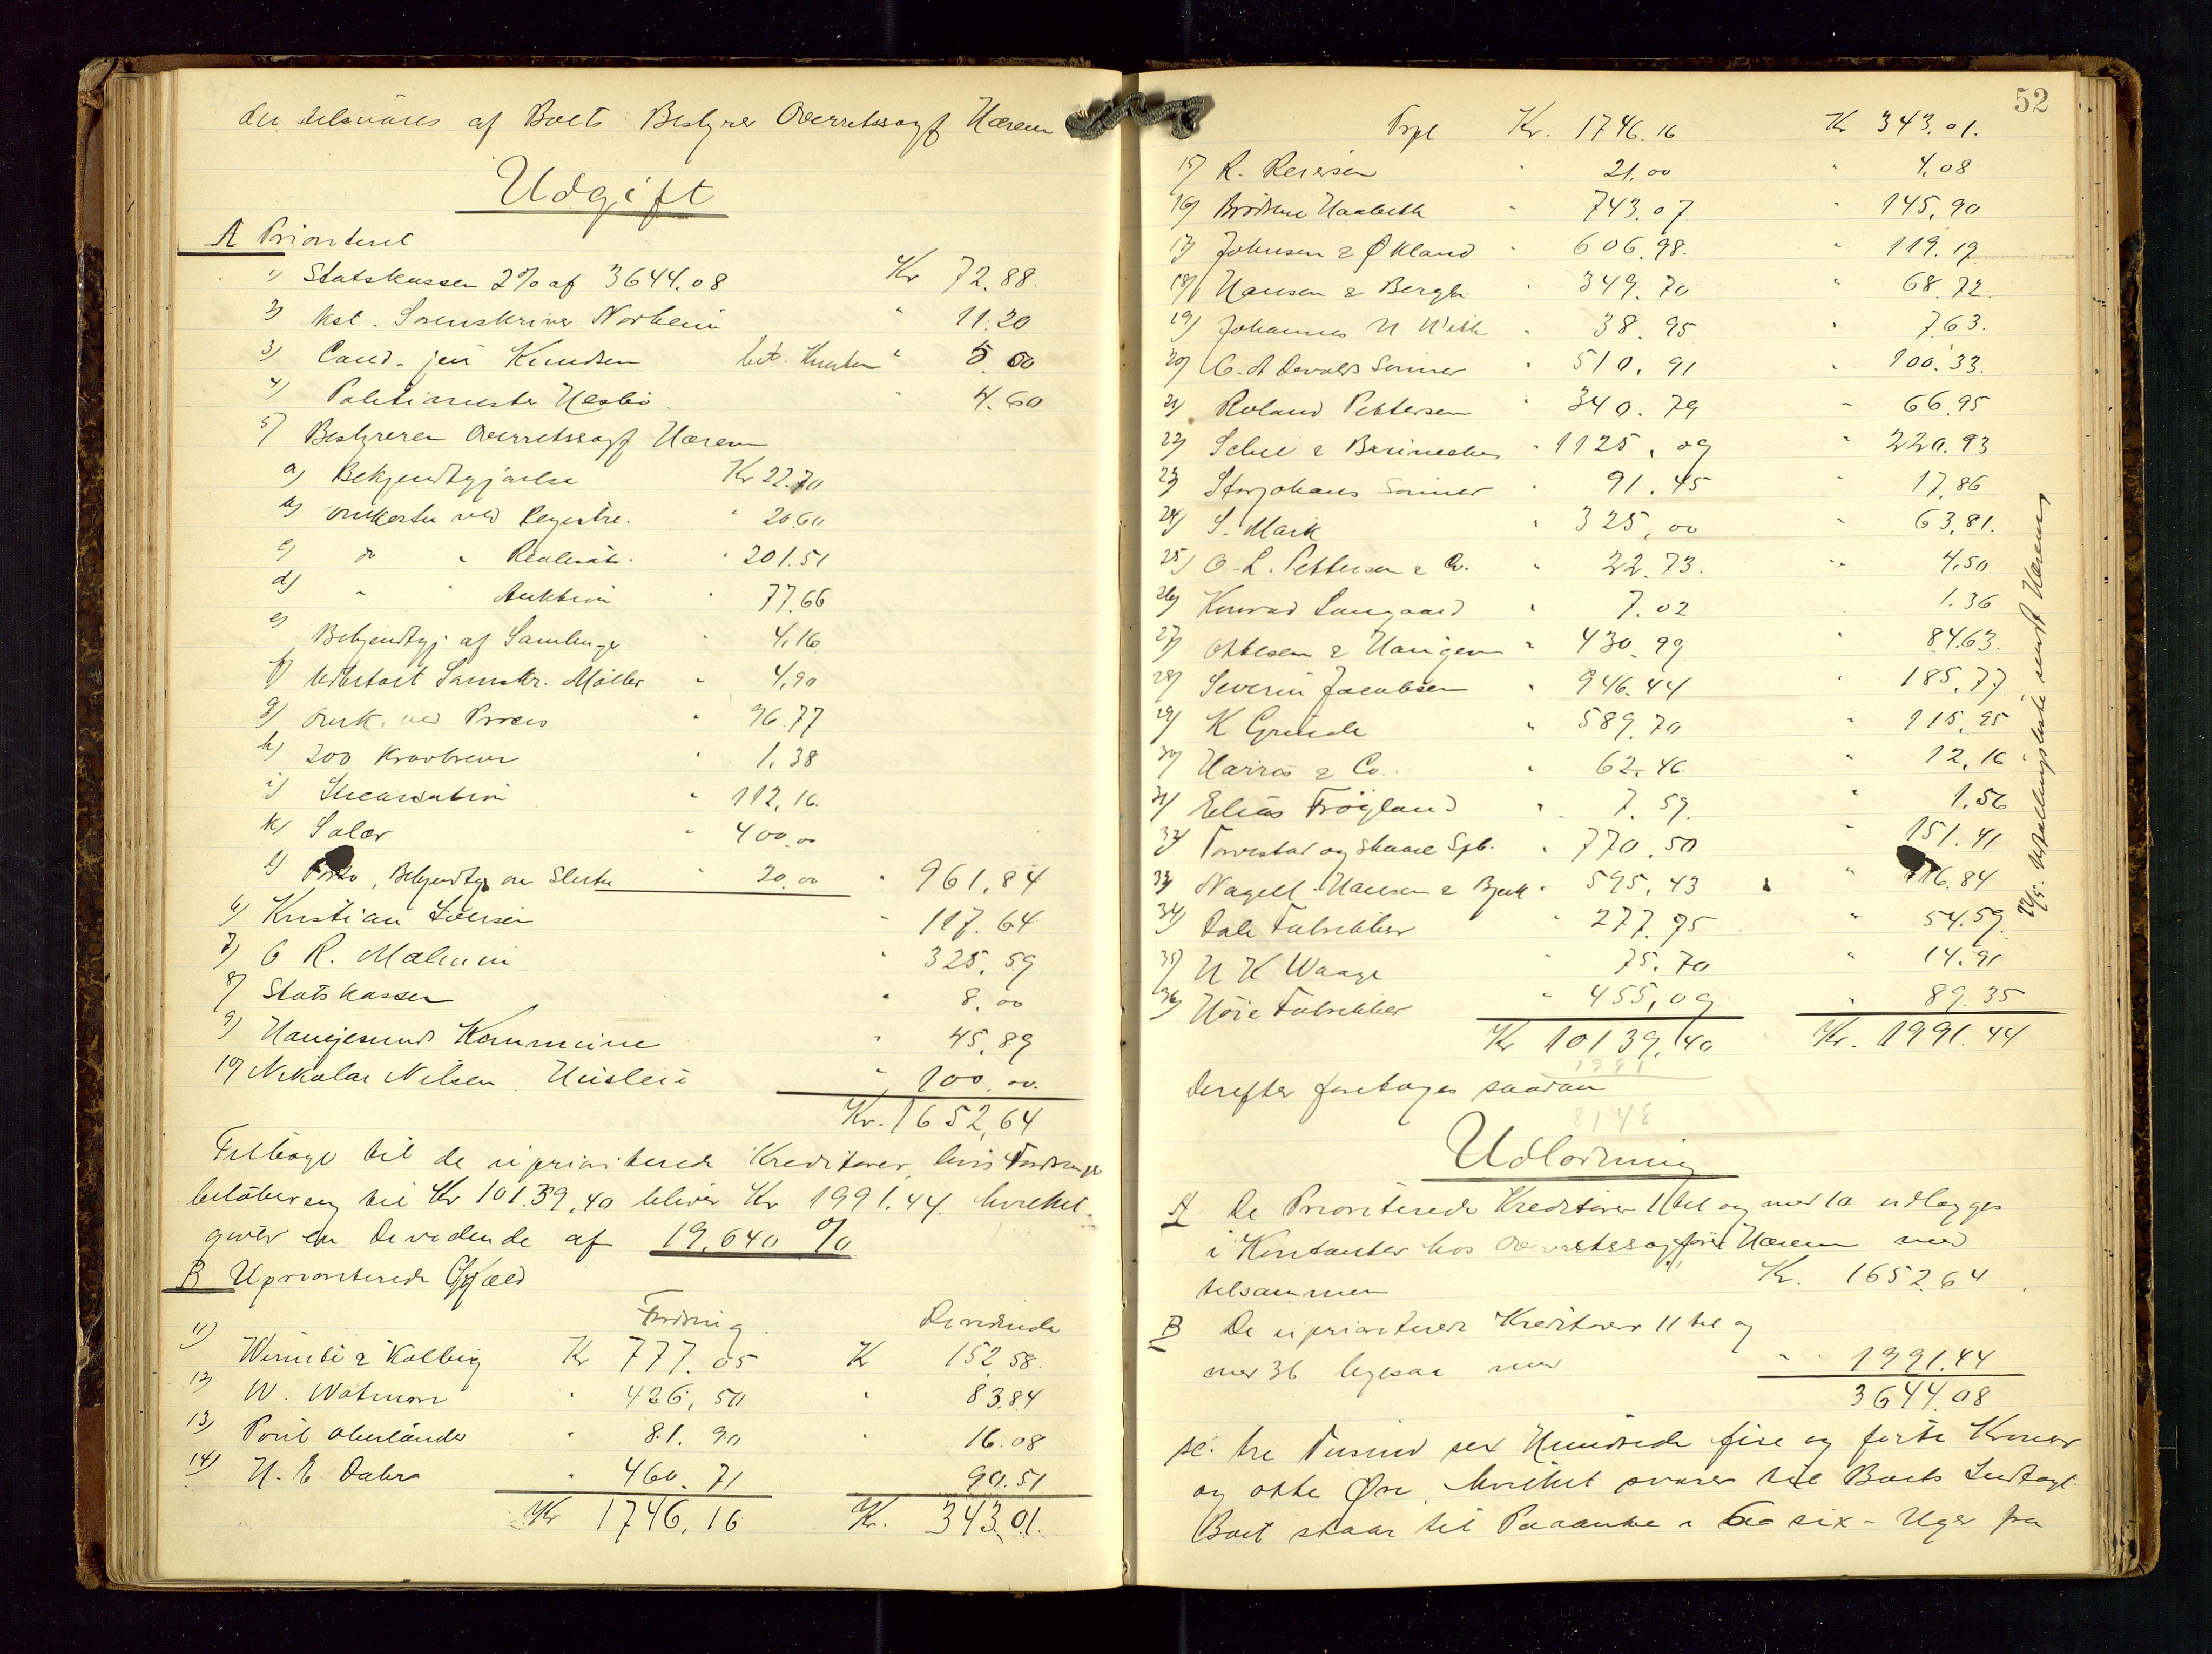 der tilsvares af Boets Bestyrer Overretssagf Hærem
Udgift
A Prioriteret
1) Statskassen 2% af 3644.08 Kr 72.88
2) Kst. Sorenskriver Norheim " 11.20
3) Cand. jur Knudsen " 5.00
4) Politimester Hesbø " 4.60
5) Bestyreren Overretssagf Hærem
a) Bekjendtgjørelse Kr 22.70
b) Omkoster ved Registre. " 20.60
c) do " Realisat. " 201.51
d) " " Auktion " 77.66
e) Bekjendtgj. af Samlinger " 4.16
f) Udbetalt Sornskr. Møller " 4,90
g) Omk. ved Proces " 96.77
h) 200 Kravbreve " 1.38
i) Incassation " 112,16
k) Salær " 400.00
l) Porto, Bekjendtg om Slutn " 20.00 " 961.84
6) Kristian Iversen " 117.64
7) O R. Malmin " 325.59
8) Statskassen " 8.00
9) Haugesunds Kommune " 45.89
10) Nikolai Nilsen Husleie " 100.00
Kr. 1652,64
Tilbage til de upriviterede Kreditorer, hvis Fordringer
beløber sig til Kr 10139,40 bliver Kr 1991.44 hvilket
giver en Dividende af 19,640 %
B Uprioriterede Gjæld
Fordring Dividende
11) Kr 777.05 Kr 152.58
12) W. Watmore " 426,50 " 83.84
13) " 81.90 " 16.08
14) H. E. Dahr " 460.71 90.51
Kr 1746.16 Kr. 343.01.
52
Trpt Kr. 1746.16 Kr 343.01.
15) R. Reiersen " 21.00 " 4.08
16) Brødrene Haabeth " 743.07 " 145,90
17) Johnsen & Økland " 606.98 " 119.19
18) Hansen & Bergh " 349.70 " 68.72
19) Johannes N With " 38.95 " 7.63
20) Sønner " 510.91 " 100.33
21) Roland Pettersen " 340.79 " 66.95
22) " 1125.09 " 220.93
23) Storjohans Sønner " 91.45 " 17.86
24) S. Mark " 325,00 " 63,81
25) O. L. Pettersen & Co. " 22.73 " 4,50
26) Konrad Langaard " 7.02 1.36
27) Ottesen & Haugen " 430.99 " 84.63
28) Severin Jacobsen " 946.44 " 185.77
29) K Grinde " 589.70 " 115.95
30) Harris & Co. " 62.46 " 12,16
31) Elias Frøyland " 7.59 " 1.56
32) Torvestad og Skaare Spb. " 770.50 " 151.41
33) Nagell Hansen & Bjerk " 595.43 " 116.84
34) Dale Fabrikker " 277.95 " 54.59
35) N K Waage " 75.70 " 14.91
36) Høie Fabrikker " 455,09 " 89.35
Kr 10139,40 Kr. 1991.44
1991
Derefter foretoges saadan
8148
Udlodning
A De Prioriterede Kreditorer 1 til og med 10 udlægges
i Kontanter hos Overretssagfører Hærem med
tilsammen Kr. 1652.64
B De upriviterede Kreditorer 11 til og
med 36 ligesaa med " 1991.44
3644.08
sc. tre Tusind sex Hundrede fire og førti Kroner
og otte Øre, hvilket svarer til Boets Indtægt.
Boet staar til Paaanke i 6 - six - Uger fra